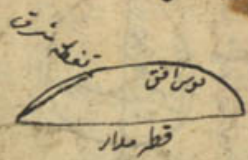 نقطه مشرق
قوس افق
قطر مدار